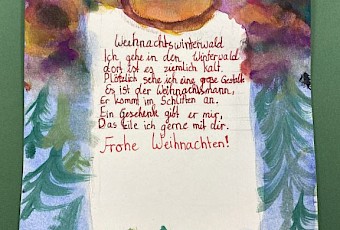 Weihnachtswinterwald
Ich gehe in den Winterwald
dort ist es ziemlich kalt.
Plötzlich sehe ich eine große Gestalt
Es ist der Weihnachtsmann,
Er kommt im Schlitten an.
Ein Geschenk gibt er mir,
Das teile ich gerne mit dir.
Frohe Weihnachten!